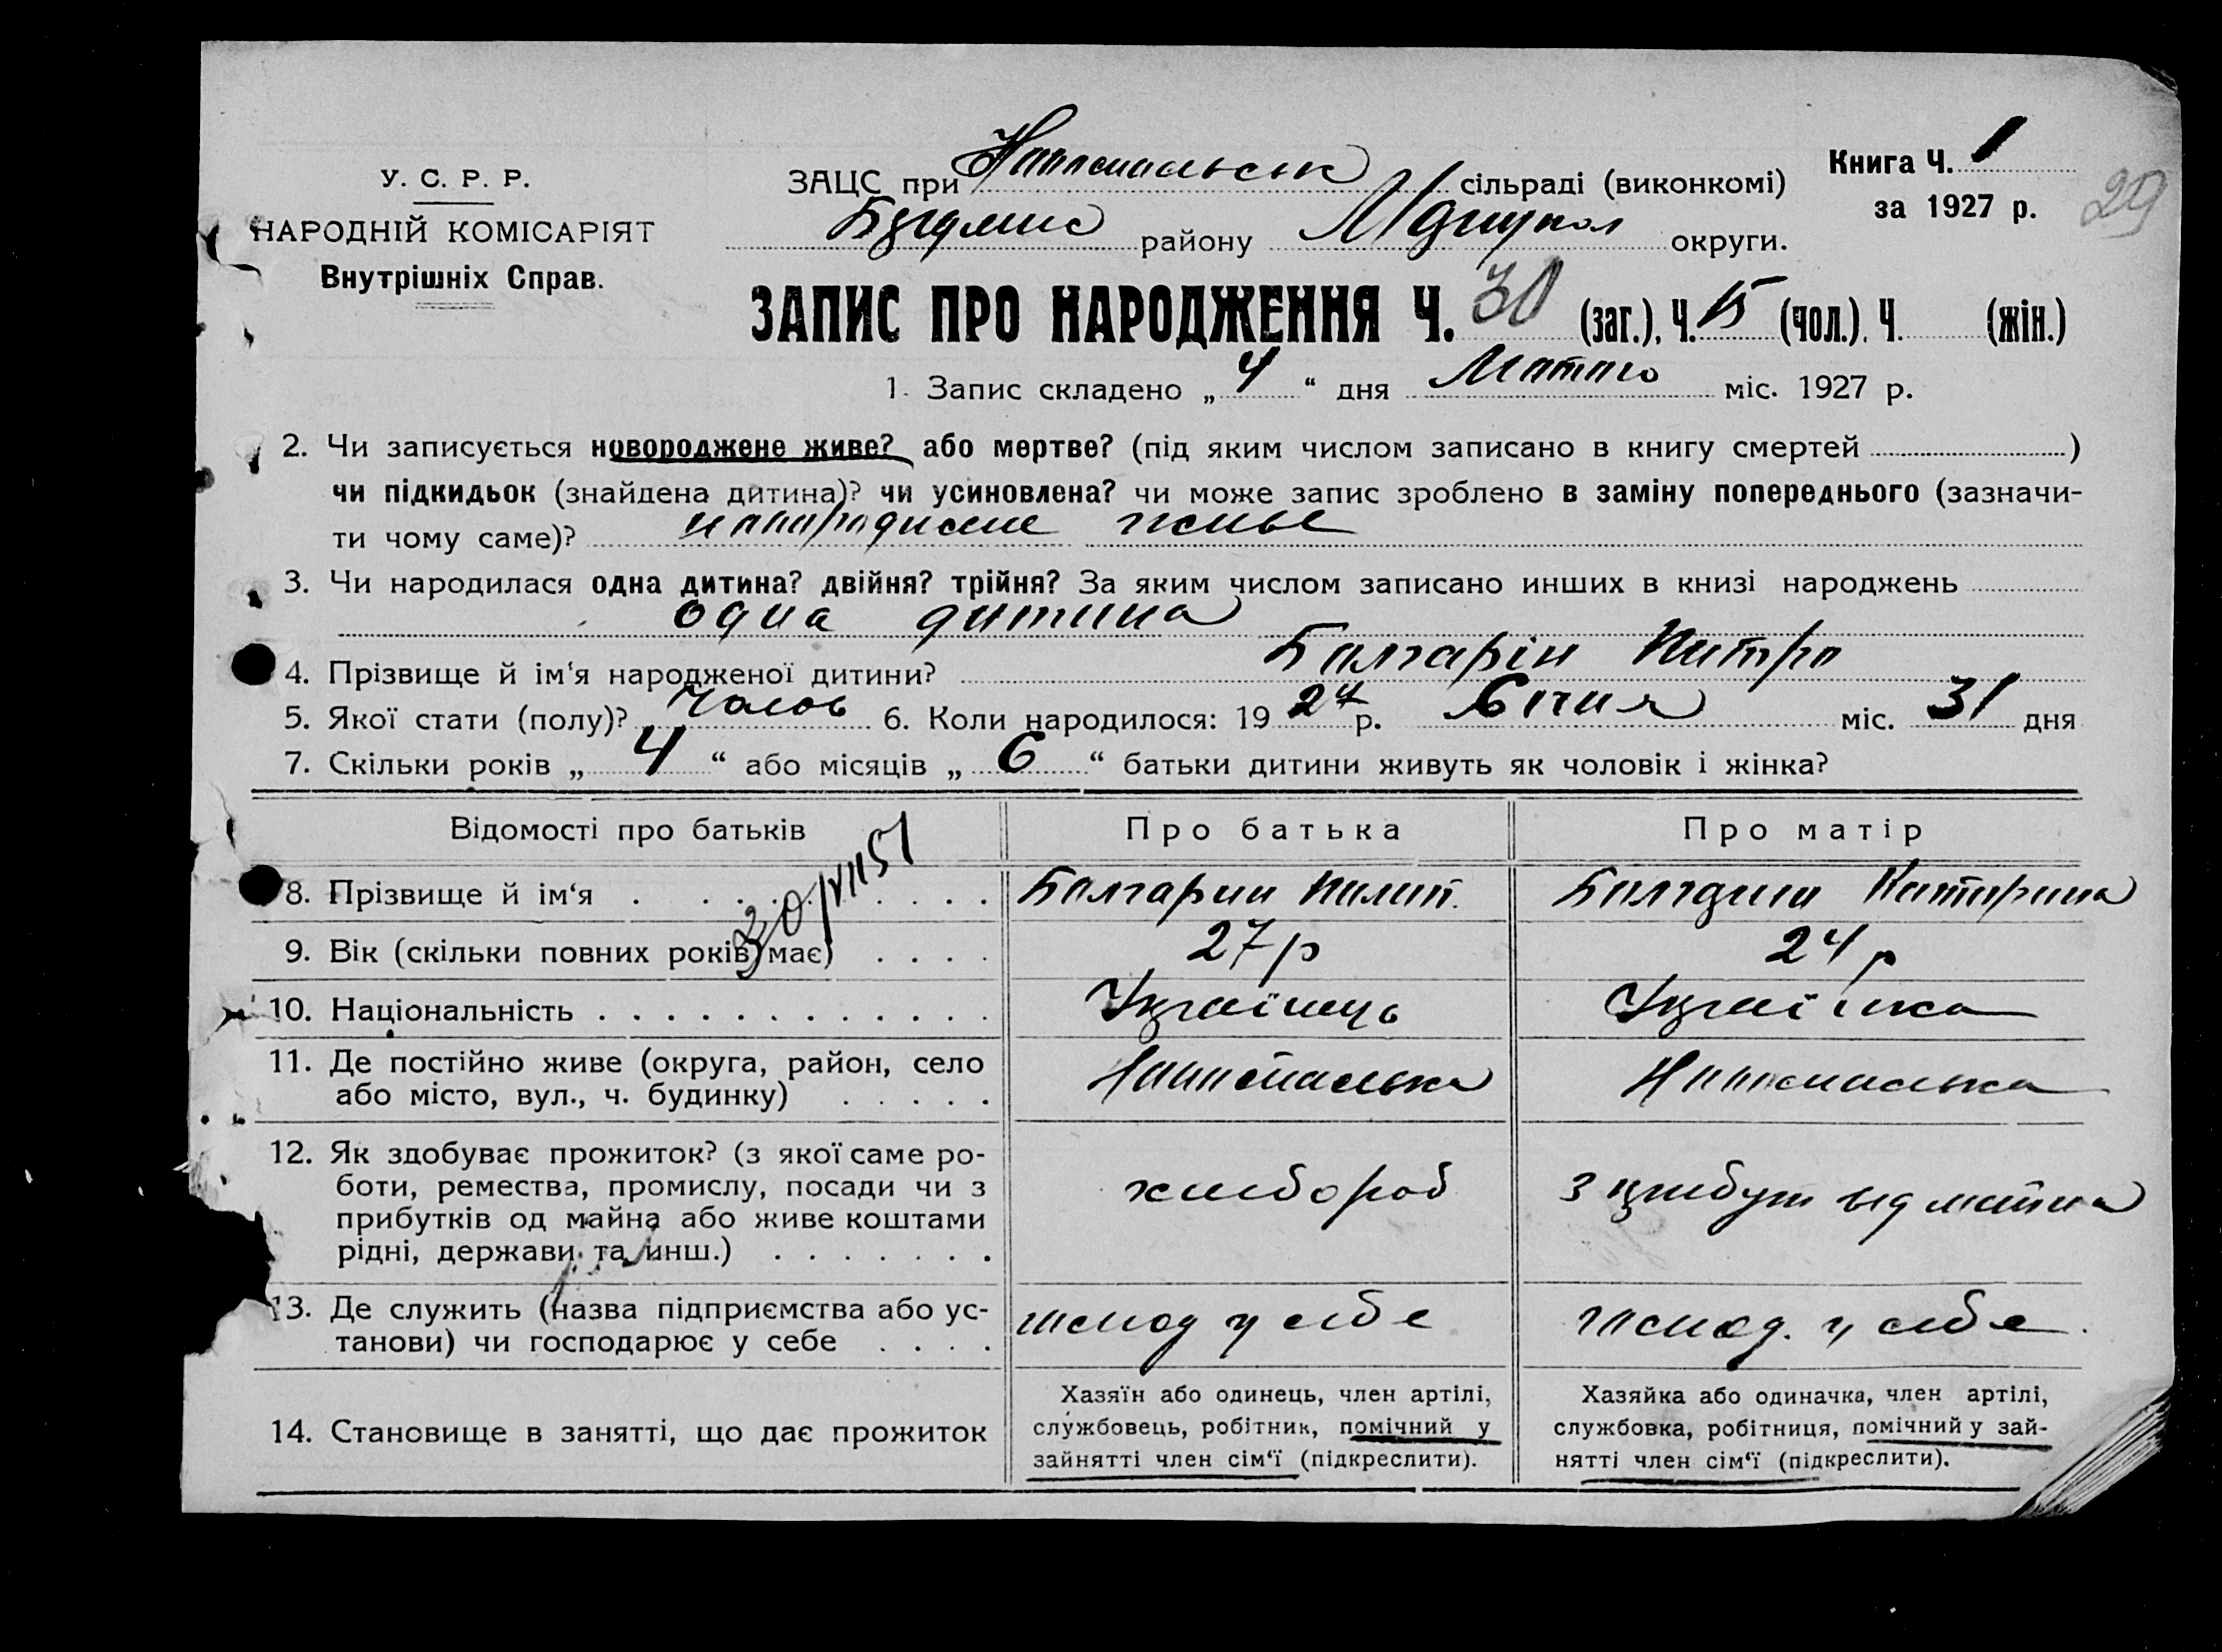 У. С. Р. Р.
НАРОДНІЙ КОМІСАРІЯТ
Внутрішніх Справ.
ЗАЦС при Новоспаськ сільраді (виконкомі)
району округи.
Книга Ч. 1
за 1927 р.
29
ЗАПИС ПРО НАРОДЖЕННЯ Ч. 30 (заг.), Ч. 15 (чол.), Ч. (жін.)
1. Запис складено „ 4 “ дня міс. 1927 р.
2. Чи записується новороджене живе? або мертве? (під яким числом записано в книгу смертей )
чи підкидьок (знайдена дитина)? чи усиновлена? чи може запис зроблено в заміну попереднього (зазначи-
ти чому саме)? живе
3. Чи народилася одна дитина? двійня? трійня? За яким числом записано инших в книзі народжень
одна дитина
4. Прізвище й ім‘я народженої дитини? Болгарін Петро
5. Якої стати (полу)? Чолов 6. Коли народилося: 19 27 р. Січня міс. 31 дня
7. Скільки років „ 4 “ або місяців „ 6 “ батьки дитини живуть як чоловік і жінка?
Відомості про батьків Про батька Про матір
30/VII 51
8. Прізвище й ім‘я . . . . . . . . Болгарин Пилип. Катерина
9. Вік (скільки повних років має) . . . . 27 р 24 р
10. Національність . . . . . . . . . . . . . Українець Українка
11. Де постійно живе (округа, район, село
або місто, вул., ч. будинку) . . . . . Новоспаська Новоспаська
12. Як здобуває прожиток? (з якої саме ро-
боти, ремества, промислу, посади чи з
прибутків од майна або живе коштами
рідні, держави та инш.) . . . . . . . хлібороб
13. Де служить (назва підприємства або ус-
танови) чи господарює у себе . . . . господ у себе господ. у себе.
14. Становище в занятті, що дає прожиток
Хазяїн або одинець, член артілі,
службовець, робітник, помічний у
зайнятті член сім‘ї (підкреслити).
Хазяйка або одиначка, член артілі,
службовка, робітниця, помічний у зай-
нятті член сім‘ї (підкреслити).